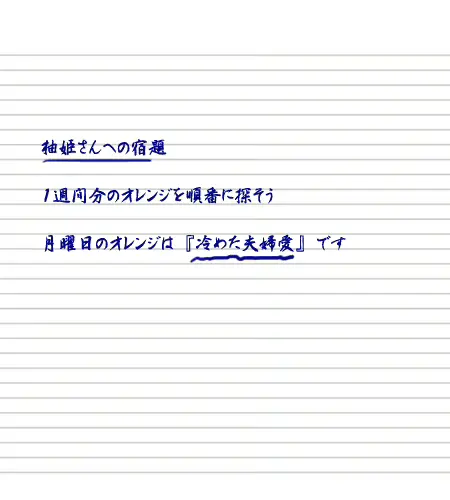 柚姫さんへの宿題
1週間分のオレンジを順番に探そう
月曜日のオレンジは『冷めた夫婦愛』です